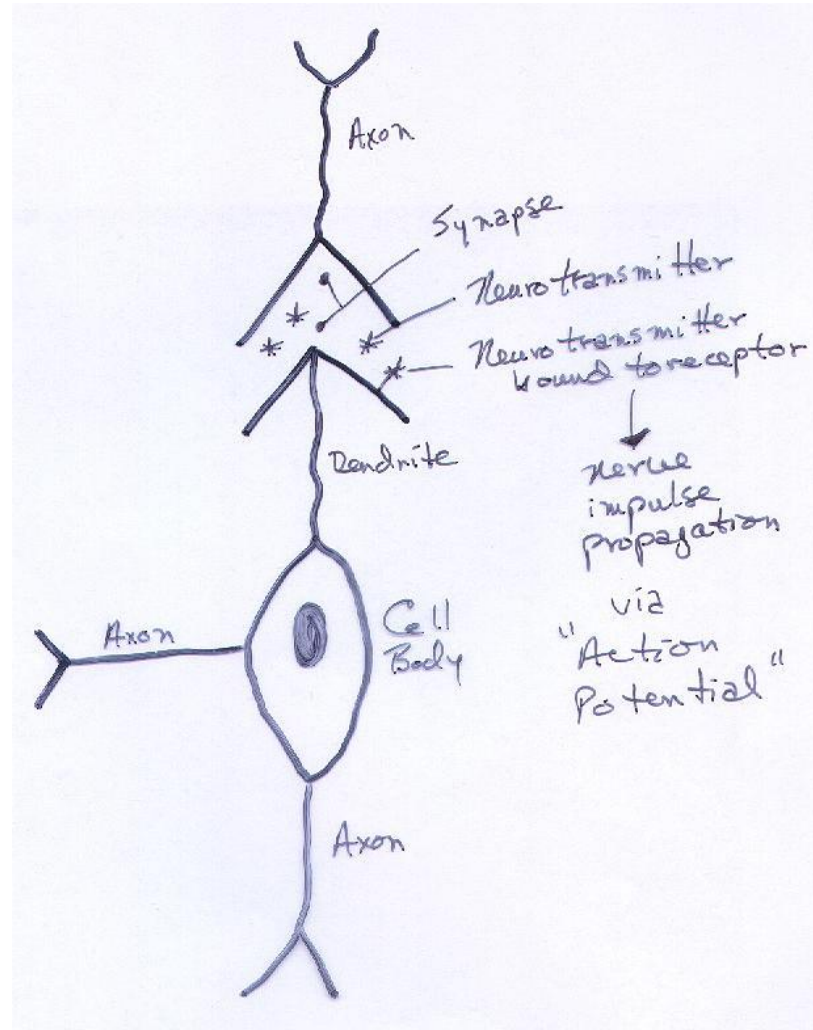 Axon
Synapse
Neurotransmitter
Neurotransmitter
bound to receptor
Dendrite
nerve
impulse
propagation
via
"Action
Potential"
Axon
Cell
Body
Axon